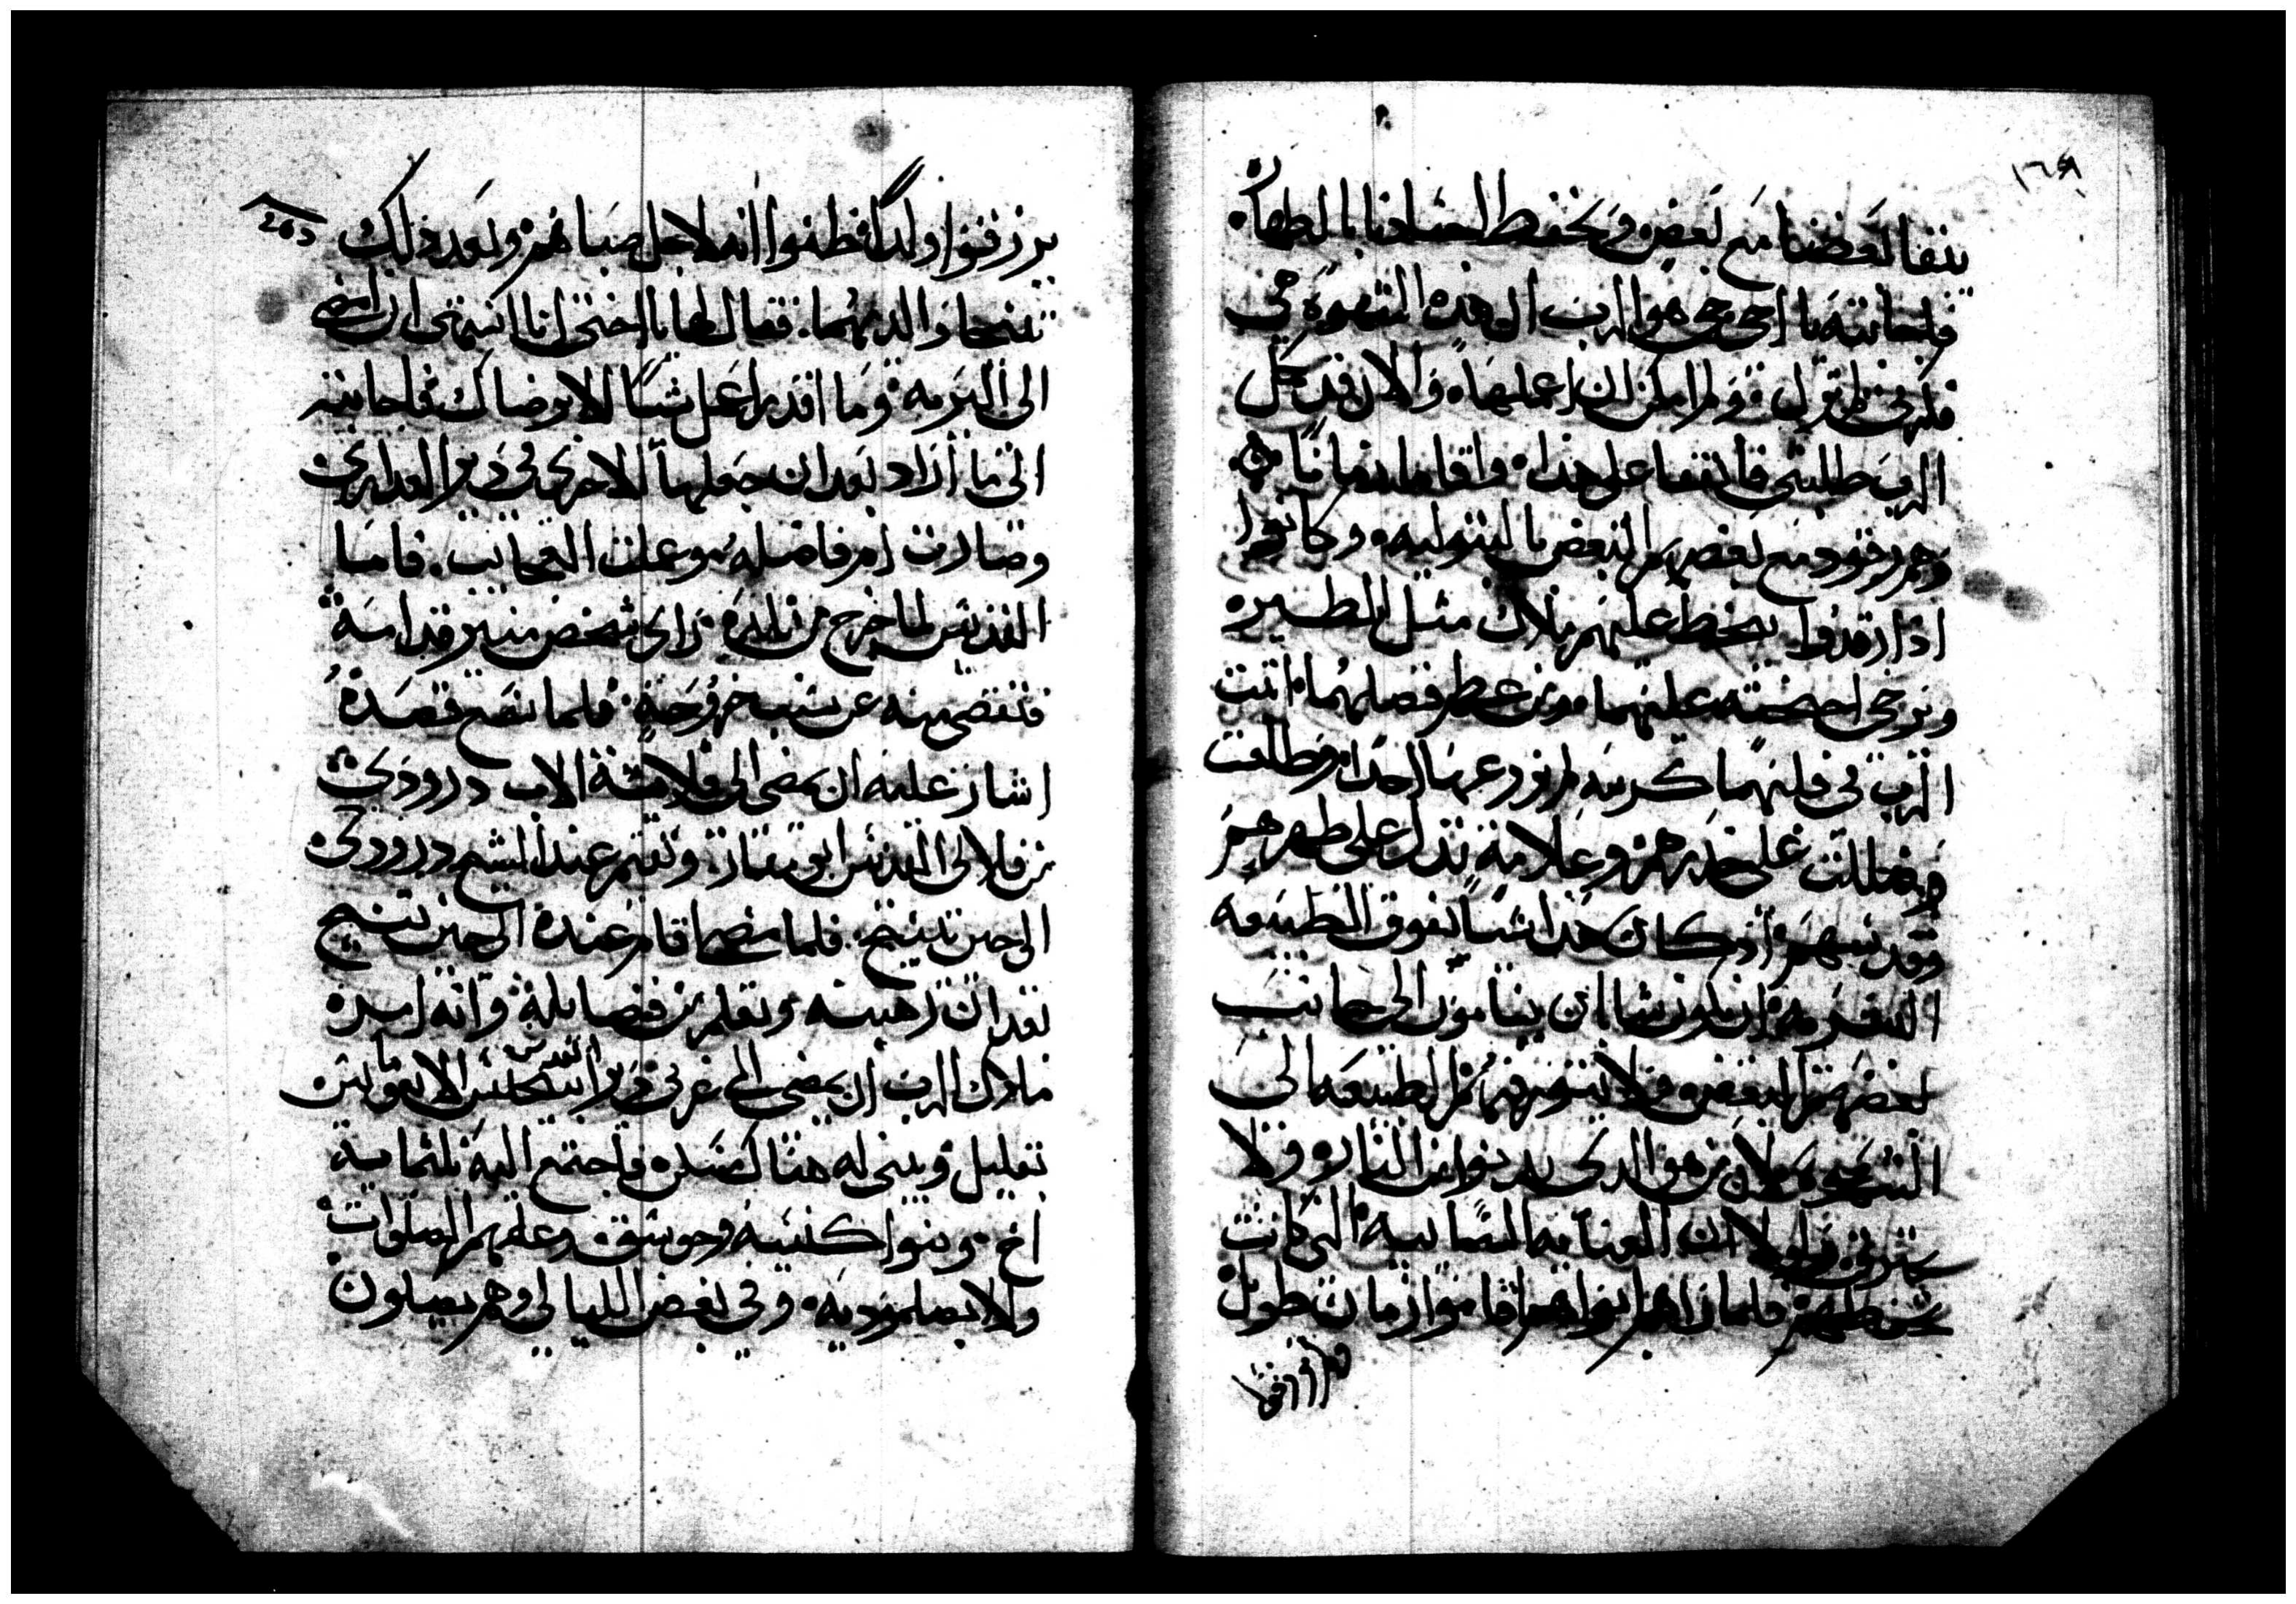 ١٦٤
نبقا بعضنا مع بعض ونحفظ اجسادنا بالطهاره
فاجابته يا اخي حي هو الرب ان هذه الشهوه في
فكري نظير قولك ولم امكن ان اعملها والان فقد كمل
الرب طلبتي فاتفقا على هذا واقاما زمانا
وهم رقود مع بعضهم البعض بالبتوليه وكانوا
اذا رقدوا يحط عليهم ملاك مثل الطير
ويرخي اجنحته عليهما ومن عظم فضلهما انبت
الرب في بيتهما كرمه لم يزرعها احد وطلعت
وضللت على خدرهم وعلامة تدل على طهرهم
وقدسهم اذ كان هذا شيا يفوق الطبيعه
البشريه ان يكون شابان ينامون الى جانب
بعضهم البعض ولا تحركهم الطبيعه الى
الشهوه لان من هو الذي يدنو من النار ولا
يحترق لولا ان العنايه السماييه التي كانت
تحفظهم فلما راهم ابواهم اقاموا زمان طويل
لم يرزقوا
يرزقوا ولدا فظنوا انه لاجل صباهم وبعد ذلك
تنيحا والديهما. فقال لها يا اختي انا اشتهي ان امضي
الى البريه وما اقدر اعمل شيا الا برضاك فاجابته
الى ما اراد بعد ان جعلها الاخرى في دير العذارى
وصارت ام فاضله وعملت العجايب. فاما
القديس لما خرج من بلده راى شخص منير قدامه
فتقصى منه عن سبب خروجه فلما نصه قصده
اشار عليه ان يمضي الى قلاية الاب درودي
من قلالي القديس ابو مقار. ويقيم عند الشيخ درودي
الى حين تنيح. فلما مضى اقام عنده الى حين تنيح
بعد ان رهبنه وتعلم من فضايله وانه امره
ملاك الرب ان يمضي الى غربي دير القديس الابو يحنس
بقليل ويبني له هناك مسكن واجتمع اليه ثلثماية
اخ وبنوا كنيسه وجوسق وعلمهم الصلوات
والابصلموديه. وفي بعض الليالي وهم يصلون